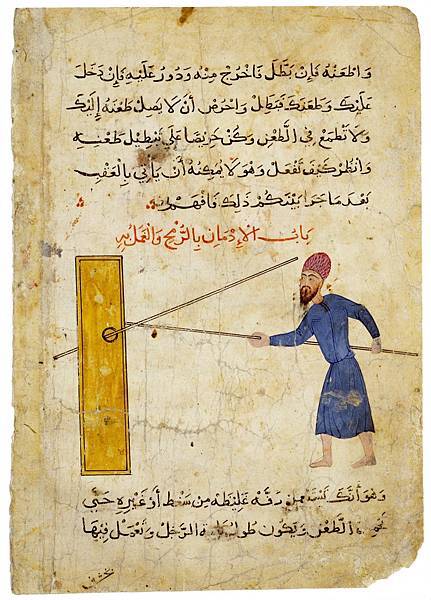 وَاطْعَنْهُ فَإِنْ بَطَّلَ فَاخْرُجْ مِنْهُ وَدُورُ عَلَيْهِ فَإِنْ دَخَلَ
عَلَيْكَ وَطَعَنَكَ فَبَطِّلْ وَاحْرِصْ أَنْ لَا يَصِلْ طَعْنُهُ إِلَيْكَ
وَلَا تَطْمَعْ فِي الطَّعْنِ وَكُنْ حَرِيصًا عَلَى تَبْطِيلِ طَعْنِهِ
وَانْظُرْ كَيْفَ تَفْعَلُ وَهُوَ لَا يُمْكِنُهُ أَنْ يَأْتِي بِالْعَقْبِ
بَعْدَ مَا جَرَا بَيْنَكُمْ ذَلِكَ فَافْهَمْ
بَابُ الإِدْمَانِ بِالرُّمْحِ وَالْعَمَلِ بِهِ
وَهُوَ أَنَّكَ مِنْ رَقِّهِ غَلِيظَةٍ مِنْ سَنْطٍ أَوْ غَيْرِهِ حَتَّى
الطَّعْنَ وَيَكُونُ طُولُ الرَّجُلِ وَتَعْمَلُ فِيهَا